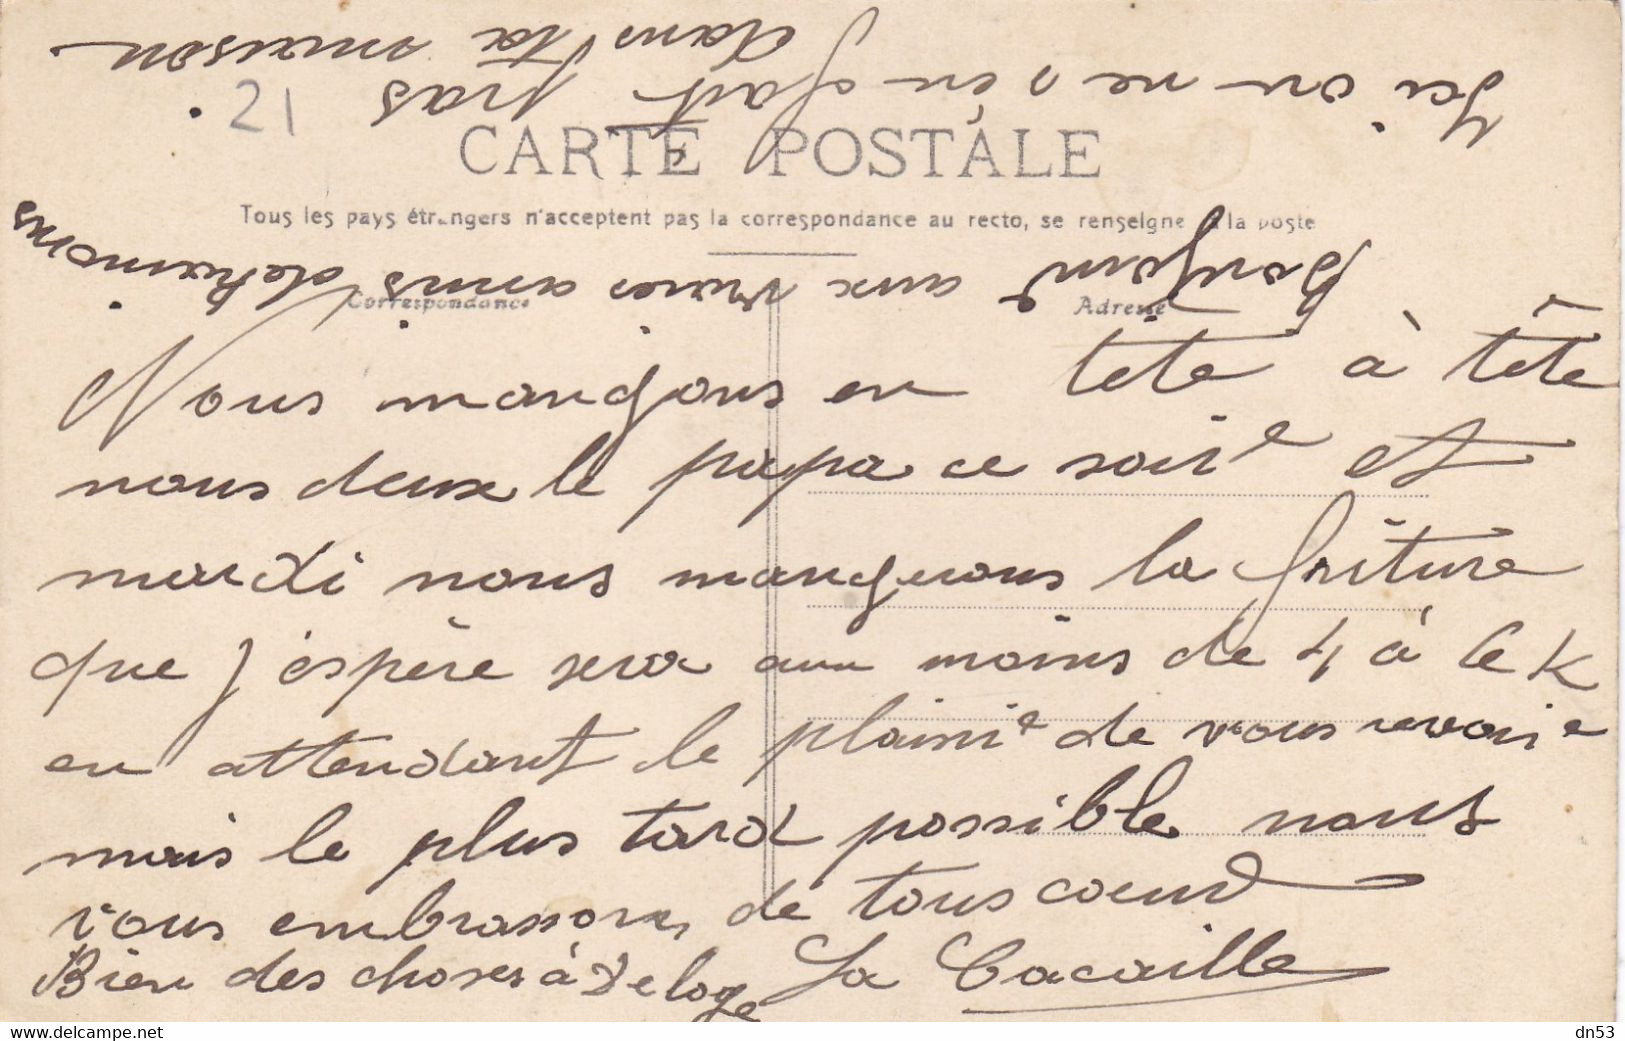 21
CARTE POSTALE
Tous les pays étrangers n'acceptent pas la correspondance au recto, se renseigne à la poste
Correspondance
Adresse
Nous mangeons en tête à tête
nous deux le papa ce soire et
mardi nous mangerons la friture
que j'espère sera au moins de 4 à 6 K
en attendant le plaisir de vous revoire
mais le plus tard possible nous
vous embrassons de tous coeur
Bien des choses à Deloge La Cacaille
Bonjour aux vrais amis
Ici on ne s'en fait pas
dans ta maison
dn53